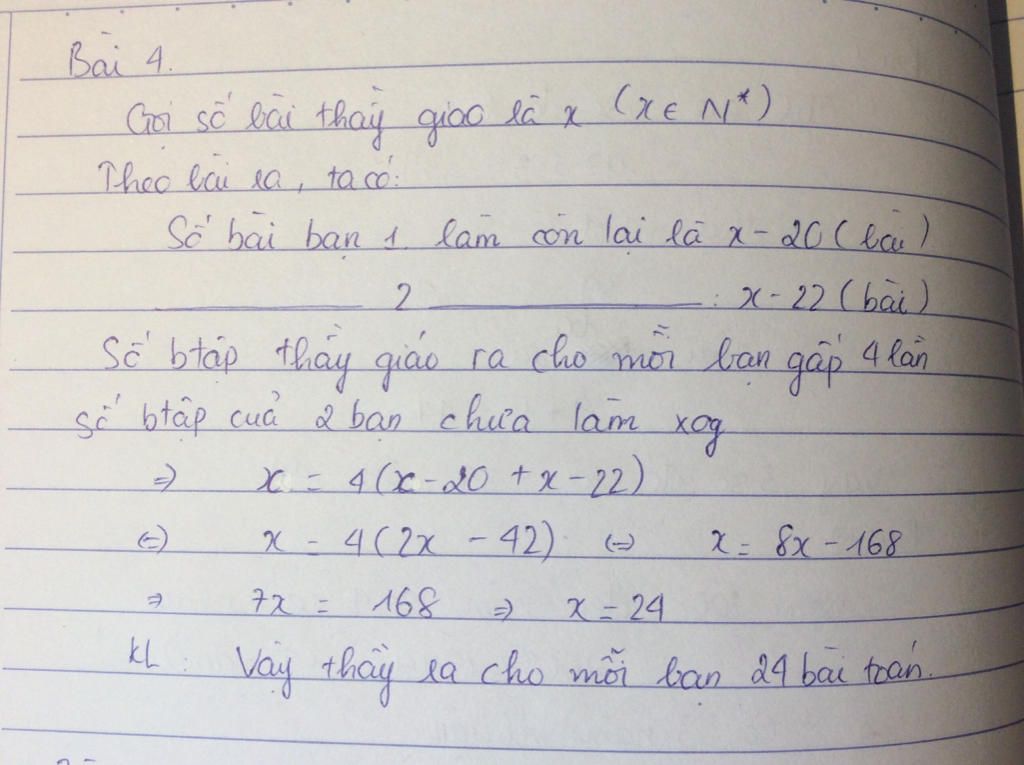 Bài 4.
Gọi số bài thầy giao là x (x ∈ N*)
Theo bài ra, ta có:
Số bài bạn 1 làm còn lại là x - 20 (bài)
2 : x - 22 (bài)
Số btập thầy giáo ra cho mỗi bạn gấp 4 lần
số btập của 2 bạn chưa làm xog
⇒ x = 4(x - 20 + x - 22)
⇔ x = 4(2x - 42) ⇔ x = 8x - 168
⇒ 7x = 168 ⇒ x = 24
KL : Vậy thầy ra cho mỗi bạn 24 bài toán.